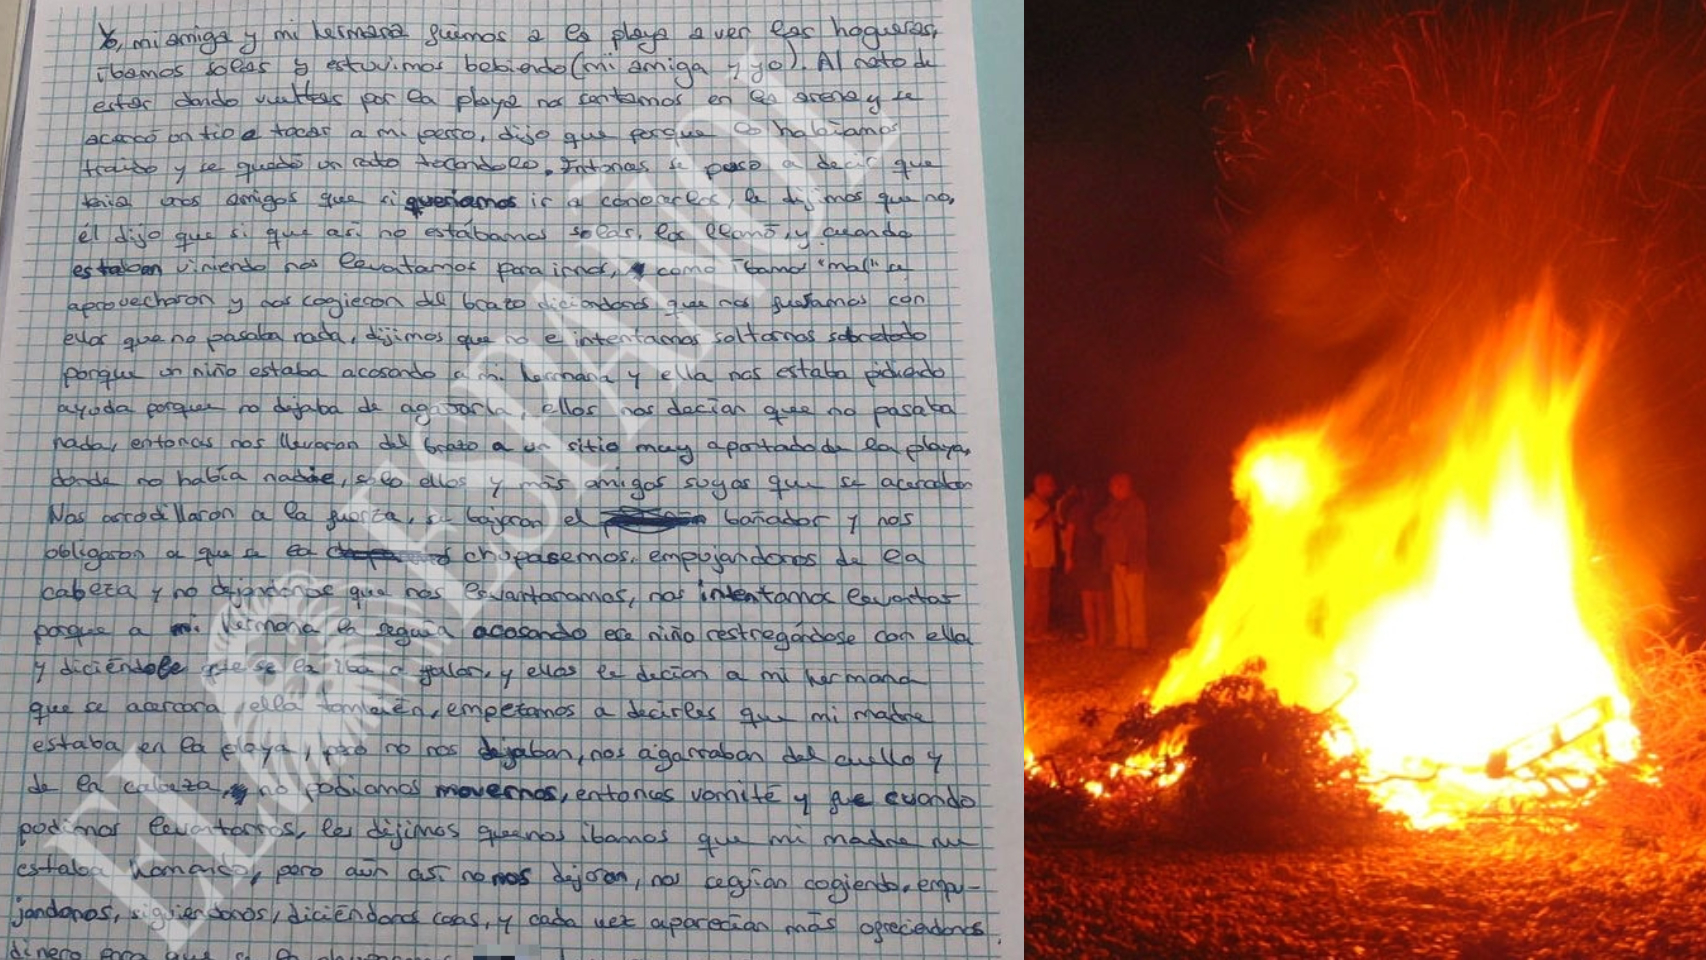 Yo, mi amiga y mi hermana fuimos a la playa a ver las hogueras,
íbamos solas y estuvimos bebiendo (mi amiga y yo). Al rato de
estar dando vueltas por la playa nos sentamos en la arena y se
acercó un tio a tocar a mi perro, dijo que porque lo habíamos
traido y se quedó un rato tocandolo. Entonces se puso a decir que
tenía unos amigos que si queríamos ir a conocerlos, le dijimos que no,
él dijo que si que así no estábamos solas, los llamó, y cuando
estaban viniendo nos levatamos para irnos, y como íbamos "mal" se
aprovecharon y nos cogieron del brazo diciendonos que nos fueramos con
ellos que no pasaba nada, dijimos que no e intentamos soltarnos sobretodo
porque un niño estaba acosando a mi hermana y ella nos estaba pidiendo
ayuda porque no dejaba de agarrarla, ellos nos decían que no pasaba
nada, entonces nos llevaron del brazo a un sitio muy apartado de la playa,
donde no había nadie, solo ellos y más amigos suyos que se acercaban
Nos arrodillaron a la fuerza, se bajaron el bañador y nos
obligaron a que se la chupasemos, empujandonos de la
cabeza y no dejándonos que nos levantaramos, nos intentamos levantar
porque a mi hermana la seguía acosando ese niño restregándose con ella
y diciéndole que se la iba a follar, y ellos le decían a mi hermana
que se acercara ella también, empezamos a decirles que mi madre
estaba en la playa, pero no nos dejaban, nos agarraban del cuello y
de la cabeza, y no podíamos movernos, entonces vomité y fue cuando
pudimos levantarnos, les dijimos que nos ibamos que mi madre me
estaba llamando, pero aún así no nos dejaron, nos seguían cogiendo, empu-
jandonos, siguiendonos, diciéndonos cosas, y cada vez aparecían más ofreciendonos
dinero para que se la
EL ESPAÑOL